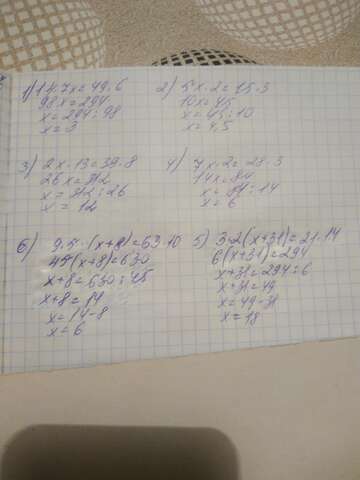 1) 14·7x=49·6
98x=294
x=294:98
x=3
2) 5x·2=15·3
10x=45
x=45:10
x=4,5
3) 2x·13=39·8
26x=312
x=312:26
x=12
4) 7x·2=28·3
14x=84
x=84:14
x=6
6) 9·5·(x+8)=63·10
45(x+8)=630
x+8=630:45
x+8=14
x=14-8
x=6
5) 3·2(x+31)=21·14
6(x+31)=294
x+31=294:6
x+31=49
x=49-31
x=18